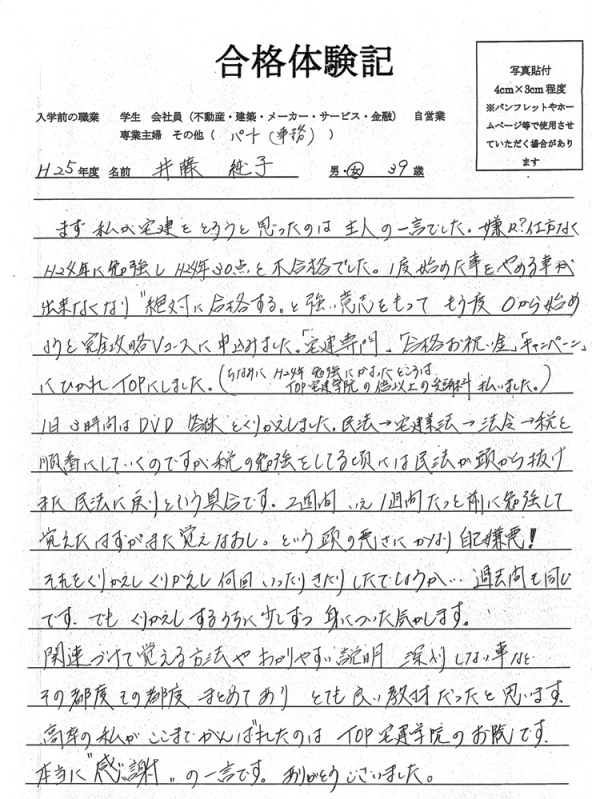 合格体験記
写真貼付
4cm×3cm 程度
※パンフレットやホー
ムページ等で使用させ
ていただく場合があり
ます
入学前の職業　学生　会社員（不動産・建築・メーカー・サービス・金融）　自営業
専業主婦　その他（　パート（事務）　）
H25年度　名前　井藤　純子　男・女　39歳
まず私が宅建をとろうと思ったのは 主人の一言でした。嫌々?仕方なく
H24年に勉強し H24年30点と不合格でした。1度始めた事をやめる事が
出来なくなり"絶対に合格する。と強い意志をもって もう1度 0から始め
ようと完全攻略Vコースに申込みました。「宅建専門」、「合格お祝い金」「キャンペーン」
にひかれ TOPにしました。（ちなみに H24年 勉強にかよったところは
TOP宅建学院の倍以上の受講料 払いました。）
1日3時間はDVD 全体 をくりかえしました。民法→宅建業法→法令→税と
順番にしていくのですが税の勉強をしてる頃には民法が頭から抜け
また民法に戻りという具合です。2週間 いえ 1週間たつと前に勉強して
覚えたはずがまた覚えなおし。という頭の悪さにかなり自己嫌悪!
それをくりかえしくりかえし何回いったりきたりしたでしょうか… 過去問も同じ
です。でも くりかえしするうちに少しずつ 身についた気がします。
関連づけて覚える方法や わかりやすい説明 深入りしない事など
その都度その都度 まとめてあり とても良い教材だったと思います。
高卒の私が ここまでがんばれたのは TOP宅建学院のお陰です。
本当に"感謝"の一言です。ありがとうございました。